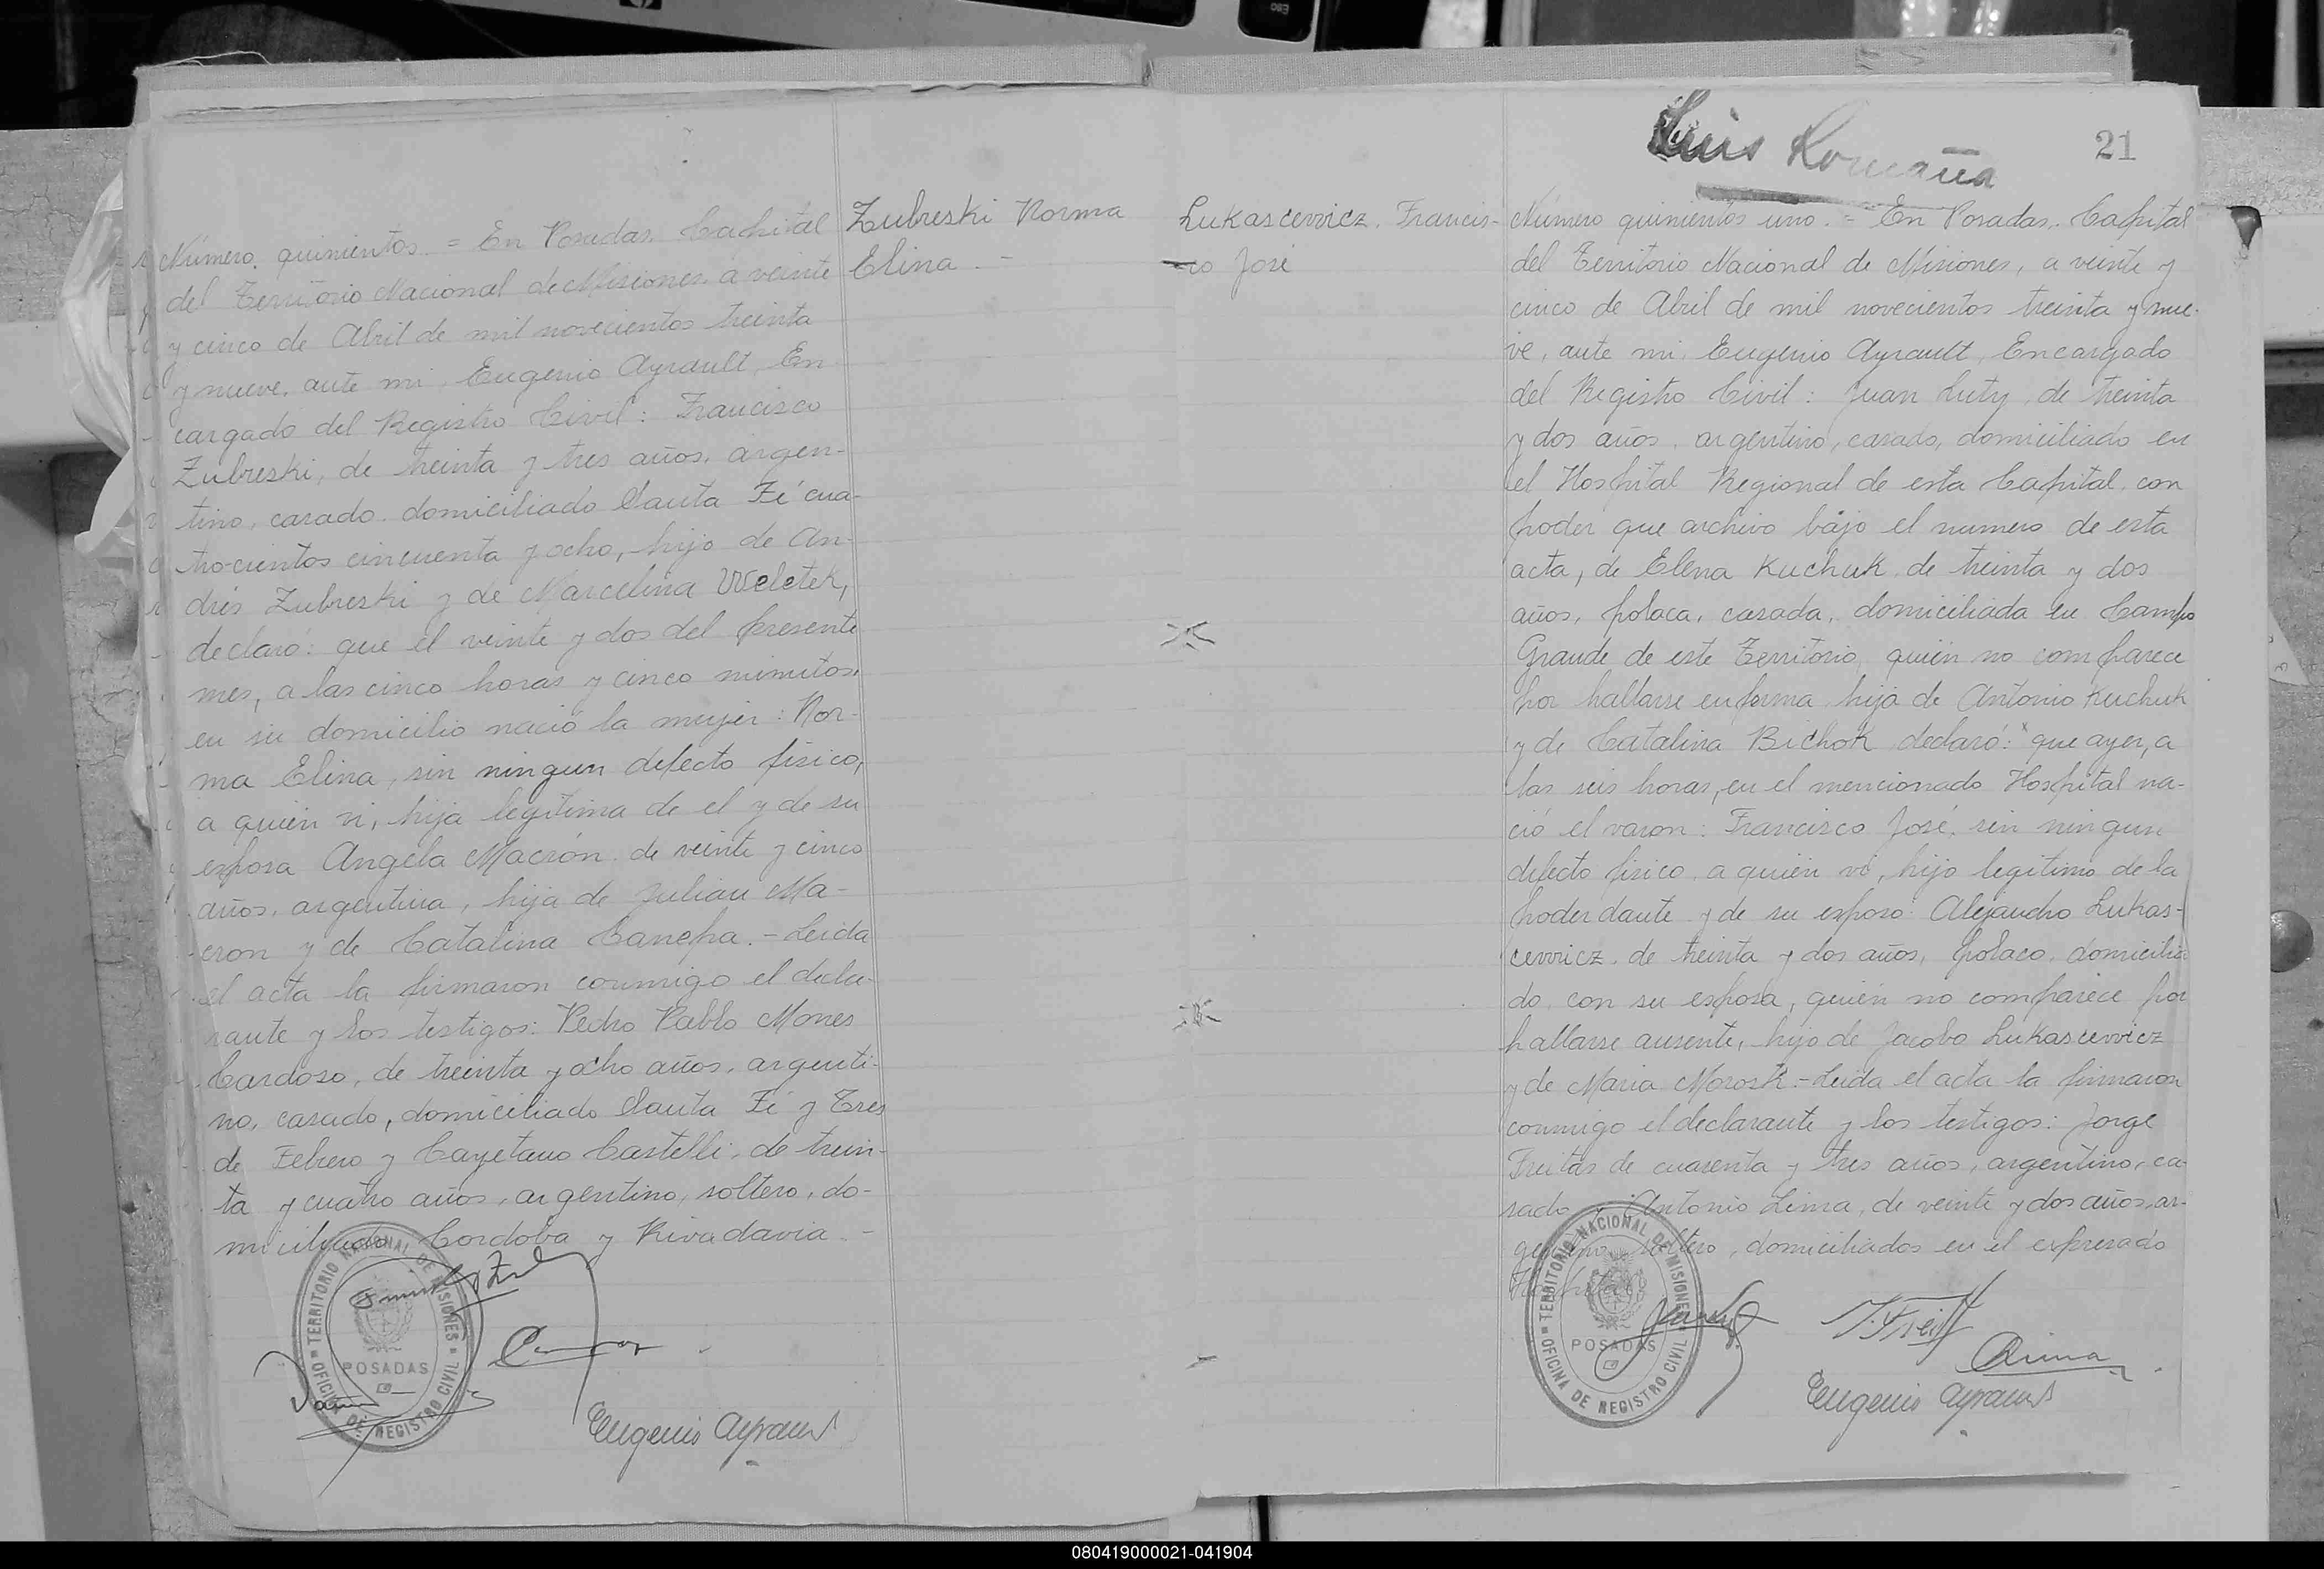 Zubreski Norma
Elina. -
Número quinientos. = En Posadas. Capital
del Territorio Nacional de Misiones. a veinte
y cinco de Abril de mil novecientos treinta
y nueve, ante mi, Eugenio Ayrault, En
cargado del Registro Civil: Francisco
Zubreski, de treinta y tres años, argen-
tino, casado. domiciliado Santa Fé cua-
tro-cientos cincuenta y ocho, hijo de An-
drés Zubreski y de Marcelina Weletek,
declaró: que el veinte y dos del presente
mes, a las cinco horas y cinco minutos,
en su domicilio nació la mujer: Nor-
ma Elina, sin ningun defecto físico,
a quien vi, hija legítima de el y de su
esposa Angela Macrón. de veinte y cinco
años. argentina, hija de Julian Ma-
cron y de Catalina Canepa. - Leida
el acta la firmaron conmigo el decla-
rante y los testigos: Pedro Pablo Mones
Cardoso, de treinta y ocho años, argenti-
no, casado, domiciliado Santa Fé y Tres
de Febrero y Cayetano Castelli, de trein-
ta y cuatro años, argentino, soltero, do-
miciliado Cordoba y Rivadavia. -
TERRITORIO NACIONAL DE MISIONES
POSADAS
OFICINA DE REGISTRO CIVIL
Eugenio Ayrault
Luis Romaña
21
Lukascewicz. Francis-
co José
Número quinientos uno. = En Posadas. Capital
del Territorio Nacional de Misiones, a veinte y
cinco de Abril de mil novecientos treinta y nue-
ve, ante mi, Eugenio Ayrault, Encargado
del Registro Civil: Juan Luty, de treinta
y dos años, argentino, casado, domiciliado en
el Hospital Regional de esta Capital, con
poder que archivo bajo el numero de esta
acta, de Elena Kuchuk, de treinta y dos
años, polaca, casada, domiciliada en Campo
Grande de este Territorio, quién no comparece
por hallarse enferma, hija de Antonio Kuchuk
y de Catalina Bichok, declaró: "que ayer, a
las seis horas, en el mencionado Hospital na-
ció el varon: Francisco José, sin ningun
defecto físico, a quién vi, hijo legítimo de la
poderdante y de su esposo: Alejandro Lukas-
cewicz, de treinta y dos años, polaco, domicilia
do, con su esposa, quién no comparece por
hallarse ausente, hijo de Jacobo Lukascewicz
y de Maria Morosk. - Leida el acta la firmaron
conmigo el declarante y los testigos: Jorge
Freitas de cuarenta y tres años, argentino, ca-
sado y Antonio Lima, de veinte y dos años, ar-
gentino, soltero, domiciliados en el expresado
Hospital
TERRITORIO NACIONAL DE MISIONES
POSADAS
OFICINA DE REGISTRO CIVIL
J. Freit
ALima
Eugenio Ayrault
080419000021-041904